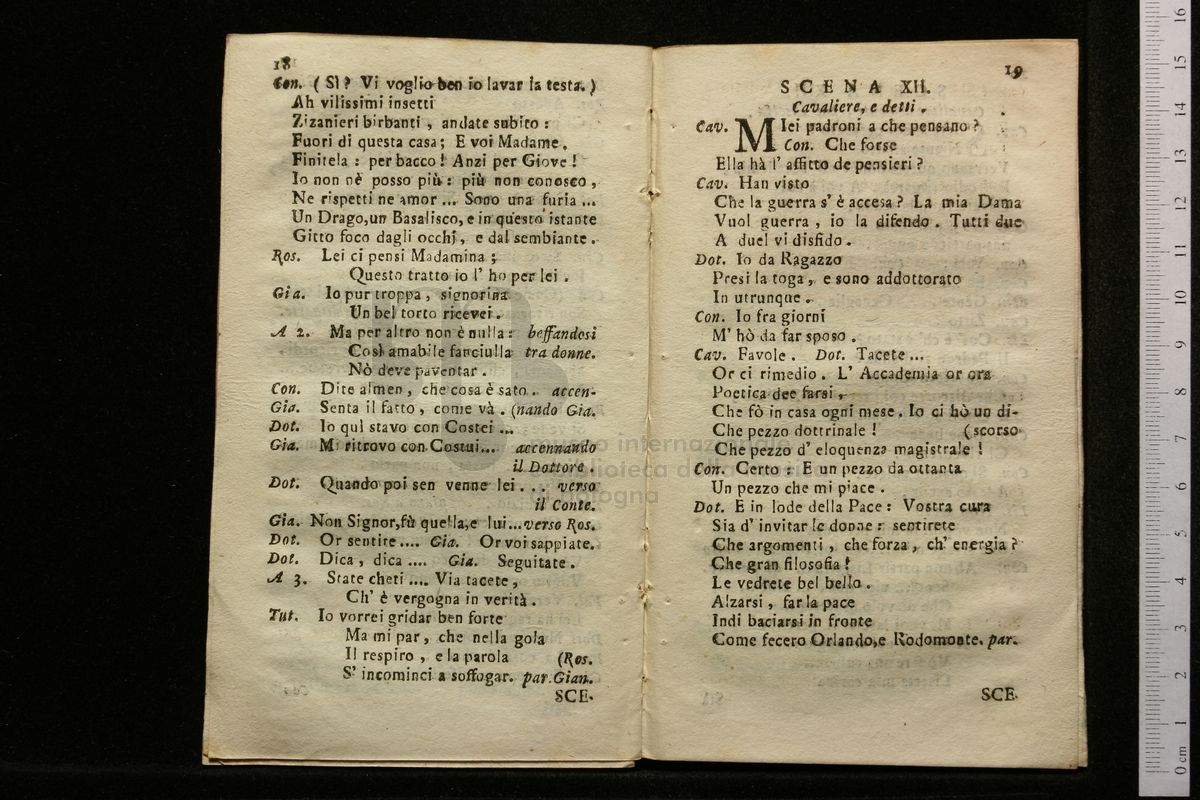 18
Con. ( Sì? Vi voglio ben io lavar la testa. )
Ah vilissimi insetti
Zizanieri birbanti , andate subito :
Fuori di questa casa; E voi Madame.
Finitela : per bacco! Anzi per Giove!
Io non nè posso più: più non conosco,
Ne rispetti ne amor ... Sono una furia ...
Un Drago,un Basalisco, e in questo istante
Gitto foco dagli occhj, e dal sembiante.
Ros. Lei ci pensi Madamina ;
Questo tratto io l' ho per lei .
Gia. Io pur troppa, signorina
Un bel torto ricevei.
A 2. Ma per altro non è nulla: beffandosi
Così amabile fanciulla tra donne.
Nò deve paventar.
Con. Dite almen, che cosa è sato.. accen-
Gia. Senta il fatto, come và. (nando Gia.
Dot. Io quì stavo con Costei ...
Gia. Mi ritrovo con Costui... accennando
il Dottore.
Dot. Quando poi sen venne lei . . . verso
il Conte.
Gia. Non Signor,fù quella,e lui...verso Ros.
Dot. Or sentite.... Gia. Or voi sappiate.
Dot. Dica, dica .... Gia. Seguitate.
A 3. State cheti .... Via tacete,
Ch' è vergogna in verità.
Tut. Io vorrei gridar ben forte
Ma mi par, che nella gola
Il respiro , e la parola (Ros.
S' incominci a soffogar. par.Gian.
SCE-
19
SCENA XII.
Cavaliere, e detti.
Cav. MIei padroni a che pensano?
Con. Che forse
Ella hà l' affitto de pensieri?
Cav. Han visto
Che la guerra s' è accesa? La mia Dama
Vuol guerra, io la difendo. Tutti due
A duel vi disfido.
Dot. Io da Ragazzo
Presi la toga, e sono addottorato
In utrunque.
Con. Io fra giorni
M' hò da far sposo.
Cav. Favole. Dot. Tacete...
Or ci rimedio. L' Accademia or ora
Poetica dee farsi,
Che fò in casa ogni mese. Io ci hò un di-
Che pezzo dottrinale! (scorso
Che pezzo d' eloquenza magistrale!
Con. Certo: E un pezzo da ottanta
Un pezzo che mi piace.
Dot. E in lode della Pace: Vostra cura
Sia d' invitar le donne: sentirete
Che argomenti, che forza, ch' energia?
Che gran filosofia!
Le vedrete bel bello.
Alzarsi, far la pace
Indi baciarsi in fronte
Come fecero Orlando,e Rodomonte. par.
SCE-